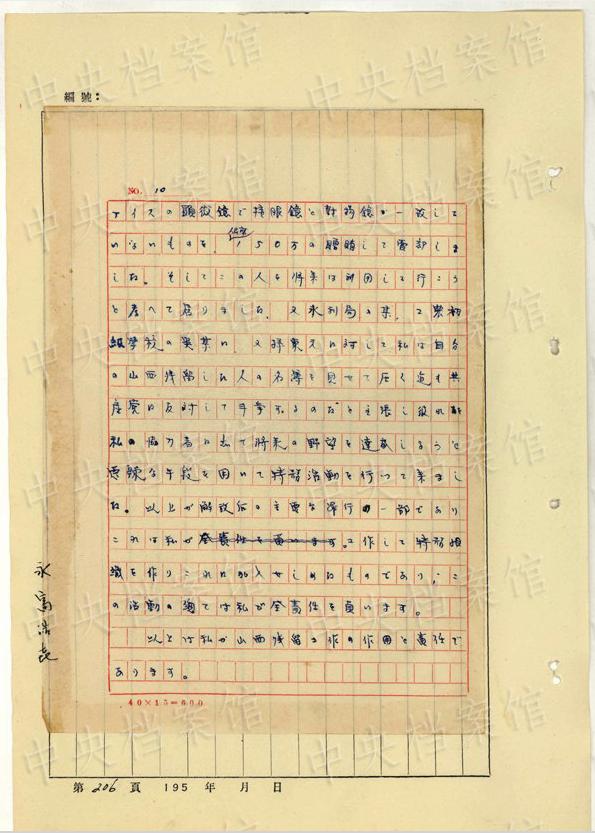 編號：
NO. 10
アイスの顕微鏡で接眼鏡と対物鏡が一致して
いないものを、150万の贈賄して買却しま
した。そしてこの人を将来は利用して行こう
と考へて居りました。又水利局の某、工業初
級学校の某に、又孫東元に対して私は自分
の山西残留した人の名簿を見せて圧く迄も共
産党に反対して斗争するのだと主張し彼れを
私の協力者にして将来の野望を達成しようと
悪辣な手段を用いて特務活動を行って来まし
た。以上が解放后の主要な罪行の一部であり
これは私が全責任を負います。工作して特務組
織を作りこれに加入せしめたものであり、こ
の活動の過ては私が全責任を負います。
以上は私が山西残留工作の作用と責任で
あります。
40×15=600
永富浩喜
第206頁 195 年 月 日
中央档案馆